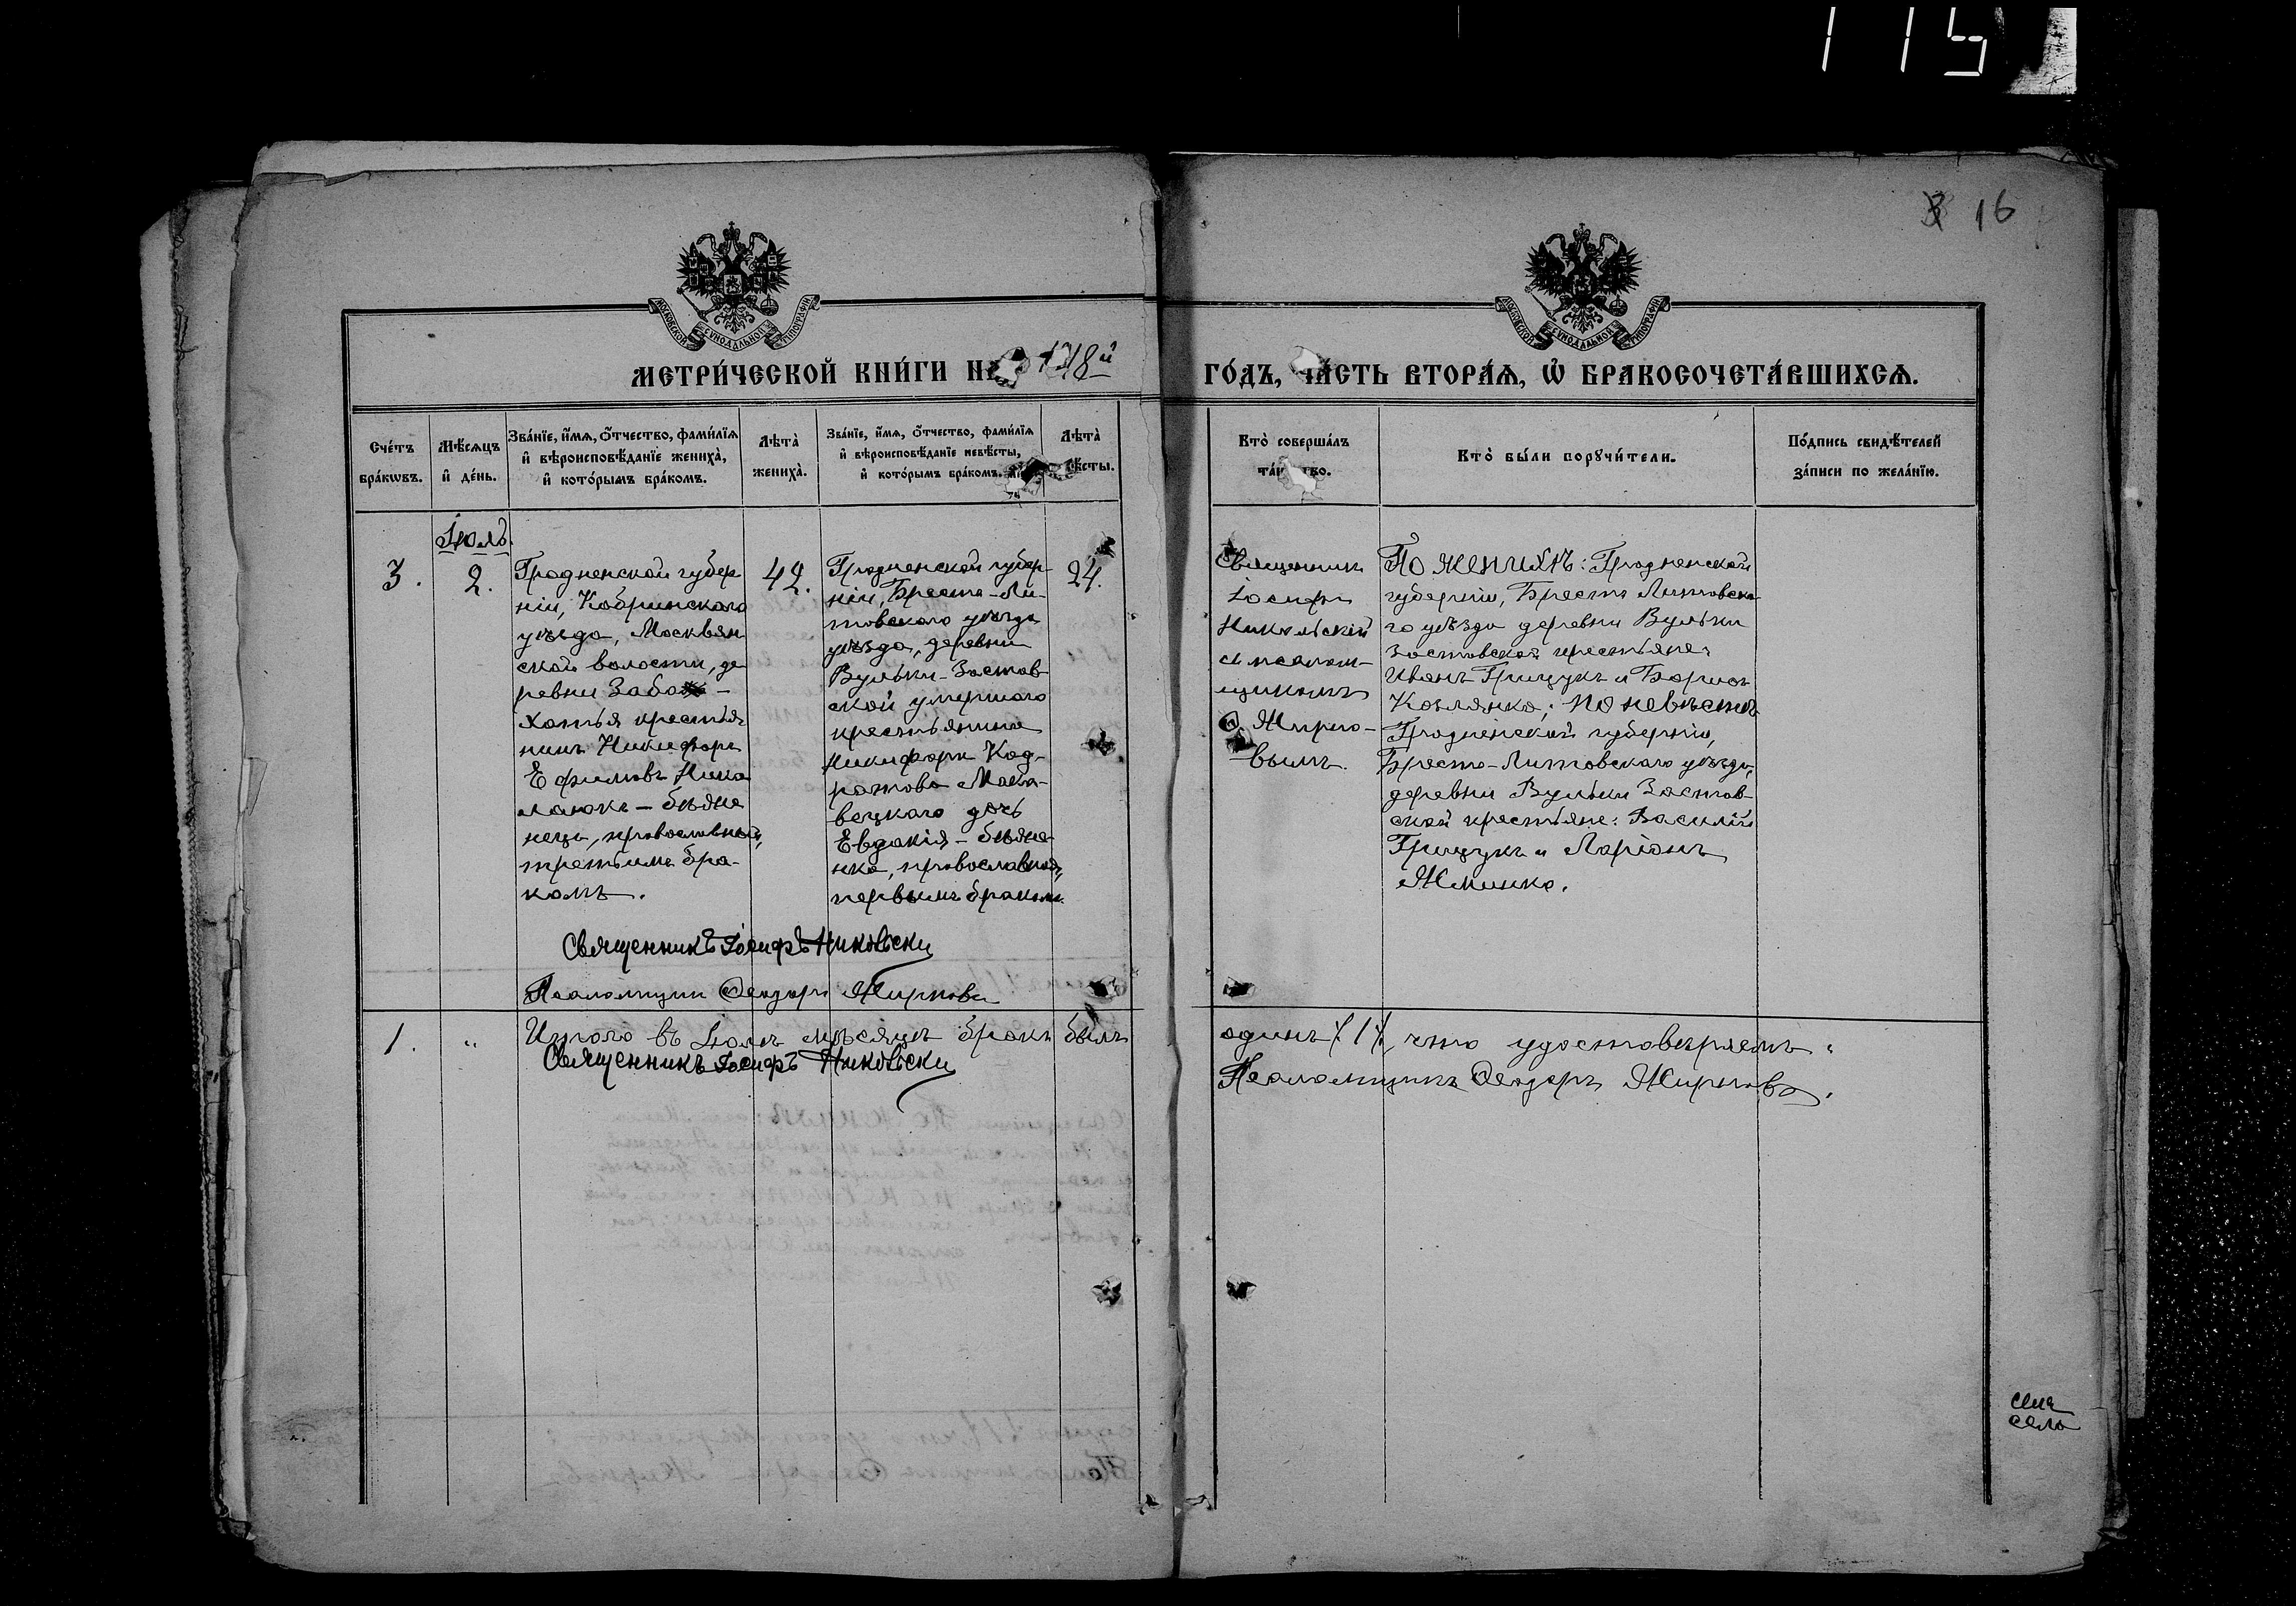 115
16
МОСКОВСКОЙ СѴНОДАЛЬНОЙ ТИПОГРАФІИ
МОСКОВСКОЙ СѴНОДАЛЬНОЙ ТИПОГРАФІИ
МЕТРИ́ЧЕСКОЙ КНИ́ГИ НА 1918й
ГО́ДЪ, ЧА́СТЬ ВТОРА́Я, Ѡ҆ БРАКОСОЧЕТА́ВШИХСЯ.
Сче́тъ
бра́кωвъ.
Мѣ́сяцъ
и҆ де́нь.
Зва́нїе, и҆́мя, ѻ҆́тчество, фами́лїя
и҆ вѣроисповѣ́данїе жениха̀,
и҆ кото́рымъ бра́комъ.
Лѣта̀
жениха̀.
Зва́нїе, и҆́мя, ѻ҆́тчество, фами́лїя
и҆ вѣроисповѣ́данїе невѣ́сты,
и҆ кото́рымъ бра́комъ.
Лѣта̀
Кто̀ соверша́лъ
Кто̀ бы́ли порꙋчи́тели.
По́дпись свидѣ́телей
за́писи по жела́нїю.
Іюль.
3.
2.
Гродненской губер
ніи, Кобринскаго
уѣзда, Москвян
ской волости, де
ревни Забо
хотья крестья
нинъ Никифоръ
Ефимовъ Нико
лаюкъ – бѣжe
нецъ, православный,
третьимъ бра-
комъ.
42.
Гродненской губер-
ніи, Бресто-Ли-
товскаго уѣзда
уѣзда, деревни
Вульки-Застав
ской умершаго
крестьянина
Никифора Код-
ратова Мака-
вецкаго дочь
Евдокія – бѣже
нка, православной,
первымъ бракомъ.
24.
Священникъ
Іосифъ
Никольскій
съ псалом-
щикомъ
Ѳ. Жирно-
вымъ.
По женихѣ: Гродненской
губерніи, Бресто Литовска
го уѣзда деревни Вульки
Заставской крестьяне:
Иванъ Грицукъ и Борисъ
Козлянко; по невѣстѣ
Гродненской губерніи,
Бресто-Литовскаго уѣзда,
деревни Вульки Застав-
ской крестьяне: Василій
Грицукъ и Ларіонъ
Жминко.
Священникъ Іосифъ Никольски
Псаломщикъ Ѳеодоръ Жирновъ
1. " Итого въ Іюлѣ мѣсяцѣ бракъ былъ
одинъ /1/, что удостовѣряемъ:
Священникъ Іосифъ Никольски
Псаломщикъ Ѳеодоръ Жирновъ.